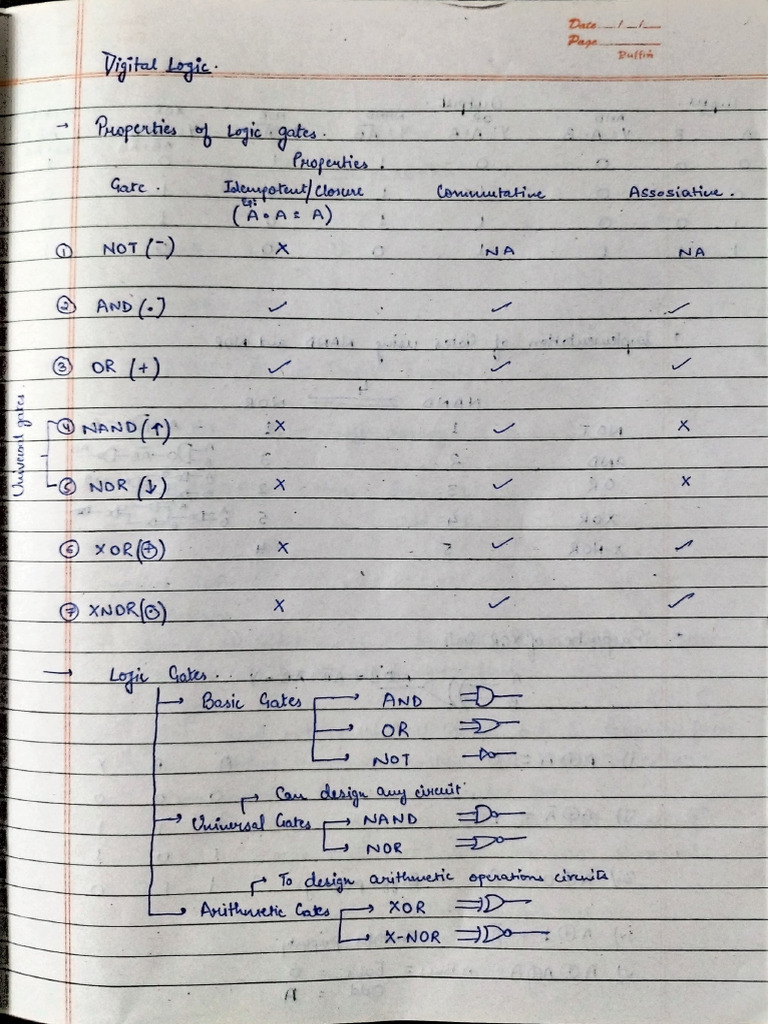 Date __/__/__
Page
Puffin
Digital Logic.
→ Properties of Logic gates.
Properties.
Gate. Idempotent/Closure Commutative Assosiative.
Eg:
(A • A = A)
① NOT (-) X NA NA
② AND (.) ✓ ✓ ✓
③ OR (+) ✓ ✓ ✓
Universal gates.
④ NAND (↑) X ✓ X
⑤ NOR (↓) X ✓ X
⑥ XOR (⊕) X ✓ ✓
⑦ XNOR (⊙) X ✓ ✓
→ Logic Gates.
→ Basic Gates → AND
→ OR
→ NOT
→ Can design any circuit
→ Universal Gates → NAND
→ NOR
→ To design arithmetic operations circuits
→ Arithmetic Gates → XOR
→ X-NOR